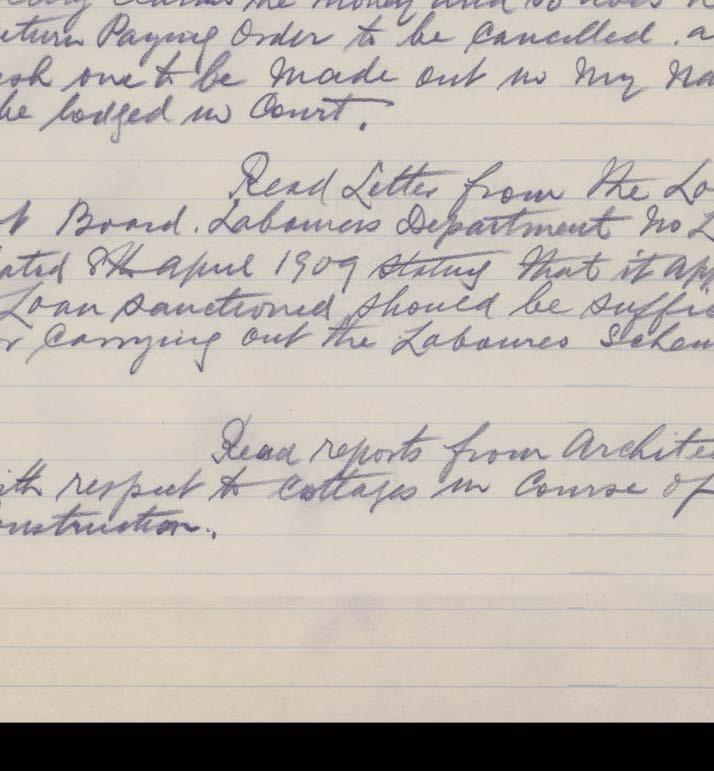 the money and so does
eturn Paying Order to be Cancelled. a
esh one to be made out in my Na
be lodged in Court.
Read Letter from the Lo
t Board. Labourers Department No L
ated 8th April 1909 stating that it app
Loan sanctioned should be suffic
r Carrying out the Laboures Schem
Read reports from Archite
ith respect to Cottages in Course of
onstruction.